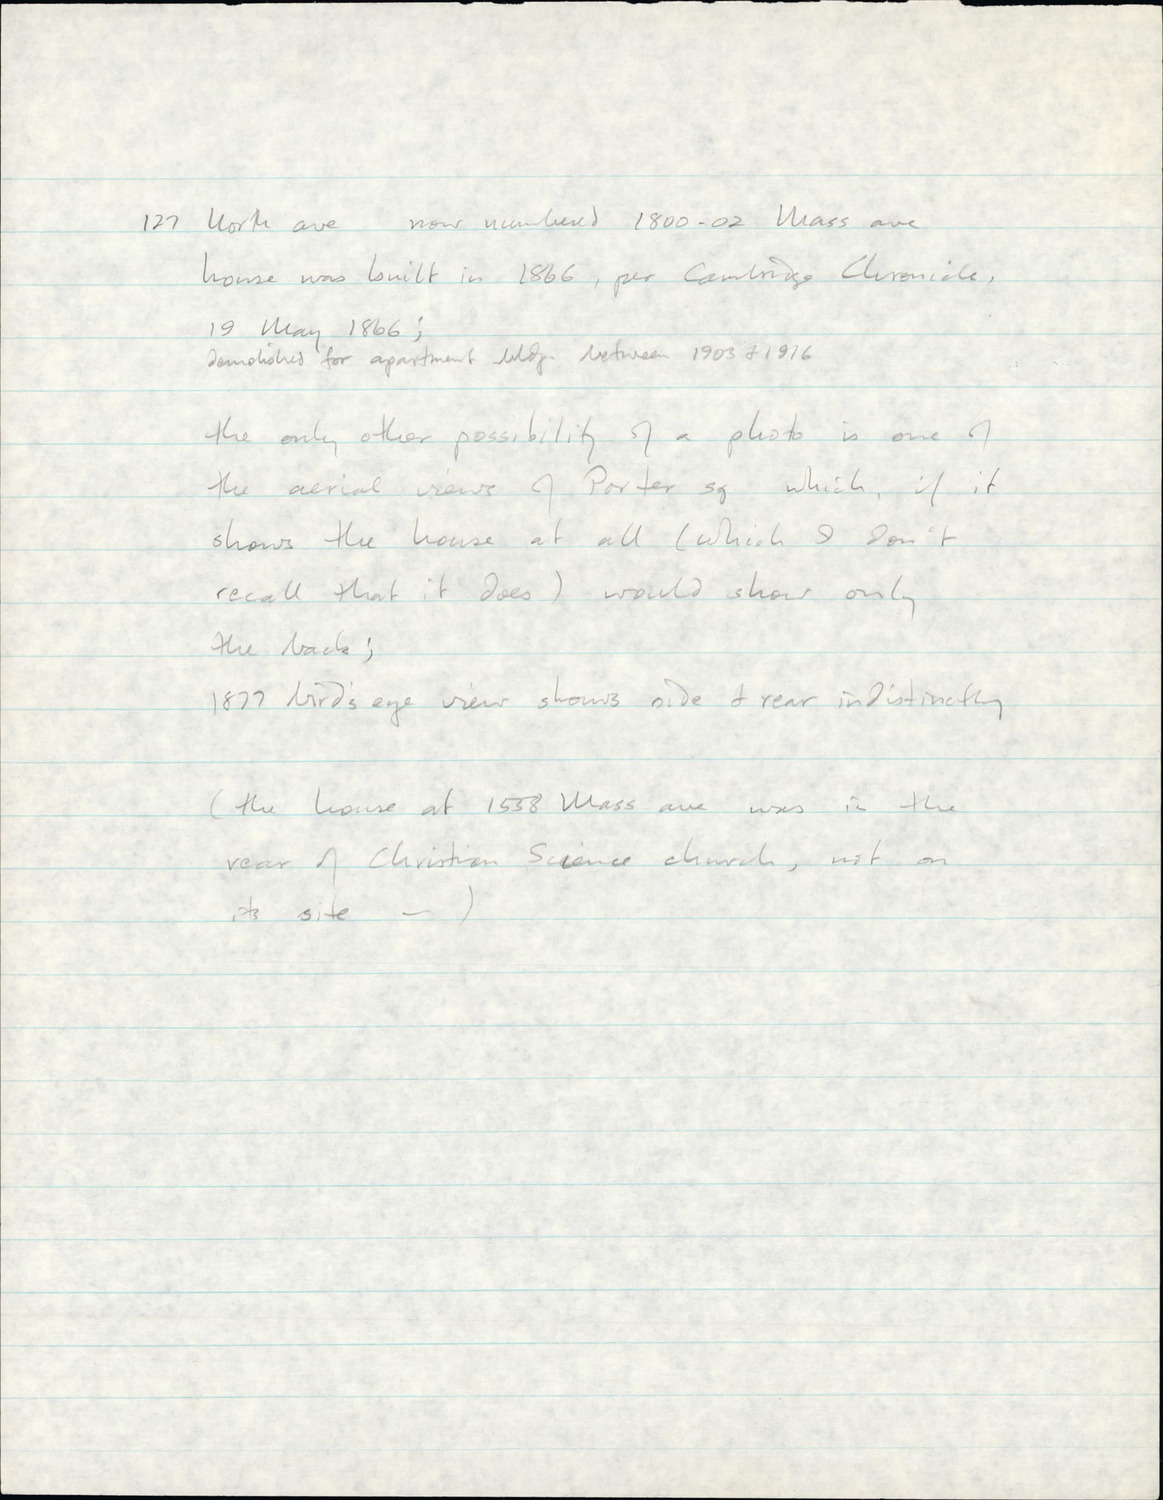 127 North ave now numbered 1800-02 Mass ave
house was built in 1866, per Cambridge Chronicle,
19 May 1866;
demolished for apartment bldg. between 1903 & 1916
the only other possibility of a photo is one of
the aerial views of Porter sq which, if it
shows the house at all (which I don't
recall that it does) would show only
the back;
1877 bird's eye view shows side & rear indistinctly
(the house at 1538 Mass ave was in the
rear of Christian Science church, not on
its site — )